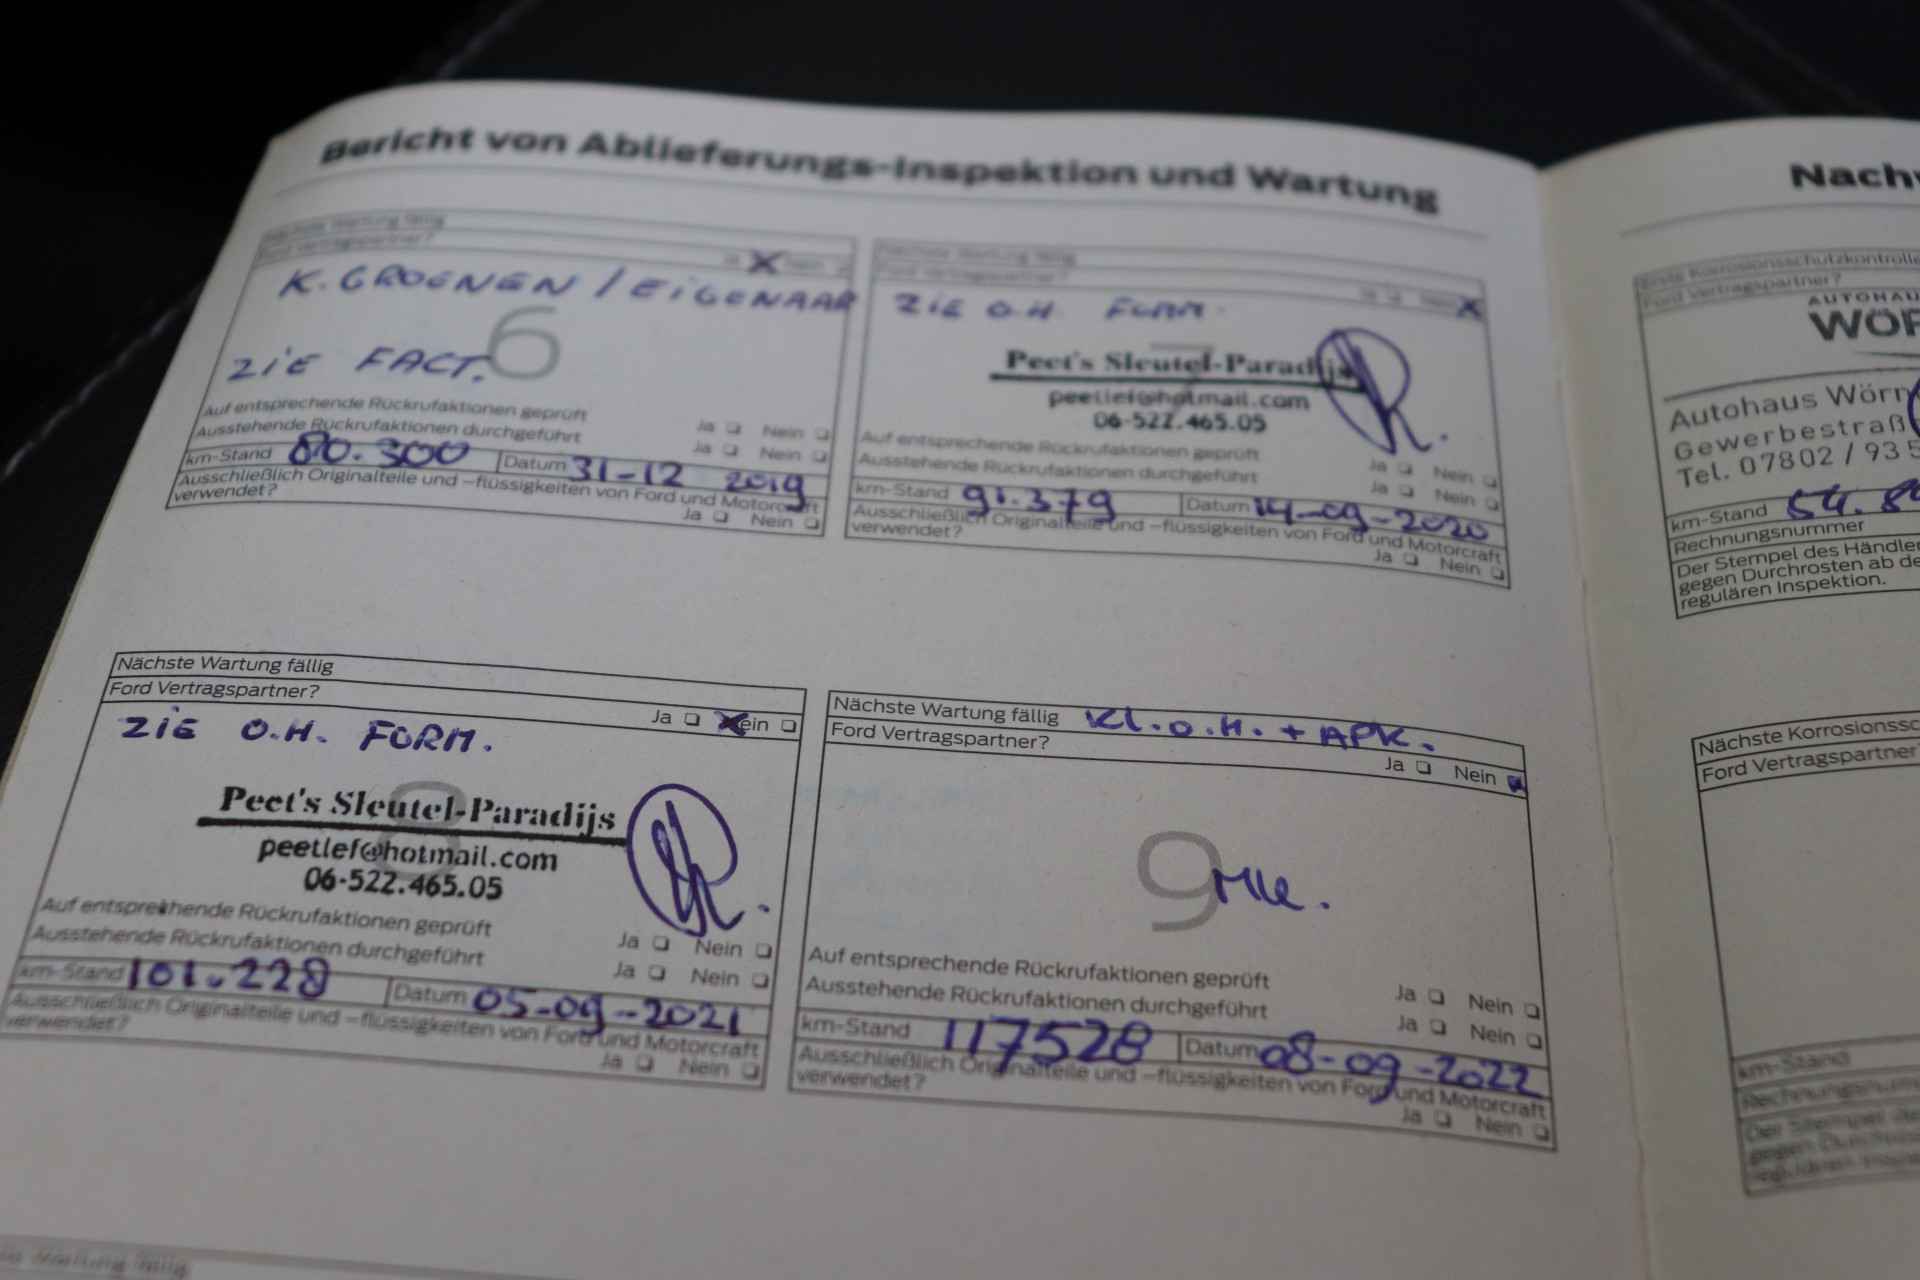 Bericht von Ablieferungs-Inspektion und Wartung
Nächste Wartung fällig
Ford Vertragspartner?
K. GROENEN / EIGENAAR
6
ZIE FACT.
Auf entsprechende Rückrufaktionen geprüft
Ja Nein
Ausstehende Rückrufaktionen durchgeführt
Ja Nein
km-Stand 80.300 Datum 31-12 2019
Ausschließlich Originalteile und –flüssigkeiten von Ford und Motorcraft
verwendet?
Ja Nein
Nächste Wartung fällig
Ford Vertragspartner?
Ja Nein
ZIE O.H. FORM.
7
Peet's Sleutel-Paradijs
peetlef@hotmail.com
06-522.465.05
Auf entsprechende Rückrufaktionen geprüft
Ja Nein
Ausstehende Rückrufaktionen durchgeführt
Ja Nein
km-Stand 91.379 Datum 14-09-2020
Ausschließlich Originalteile und –flüssigkeiten von Ford und Motorcraft
verwendet?
Ja Nein
Nächste Wartung fällig
Ford Vertragspartner?
Ja Nein
ZIE O.H. FORM.
8
Peet's Sleutel-Paradijs
peetlef@hotmail.com
06-522.465.05
Auf entsprechende Rückrufaktionen geprüft
Ja Nein
Ausstehende Rückrufaktionen durchgeführt
Ja Nein
km-Stand 101.228 Datum 05-09-2021
Ausschließlich Originalteile und –flüssigkeiten von Ford und Motorcraft
verwendet?
Ja Nein
Nächste Wartung fällig Kl. O.H. + APK.
Ford Vertragspartner?
Ja Nein
9
Auf entsprechende Rückrufaktionen geprüft
Ja Nein
Ausstehende Rückrufaktionen durchgeführt
Ja Nein
km-Stand 117528 Datum 08-09-2022
Ausschließlich Originalteile und –flüssigkeiten von Ford und Motorcraft
verwendet?
Ja Nein
Wartung fällig
Nachw
Erste Korrosionsschutzkontrolle
Ford Vertragspartner?
AUTOHAU
WÖR
Autohaus Wörn
Gewerbestraß
Tel. 07802 / 93 5
km-Stand 54.8
Rechnungsnummer
Der Stempel des Händler
gegen Durchrosten ab de
regulären Inspektion.
Nächste Korrosionssc
Ford Vertragspartner
km-Stand
Rechnungsnum
Der Stempel de
gegen Durchro
regulären Inspe